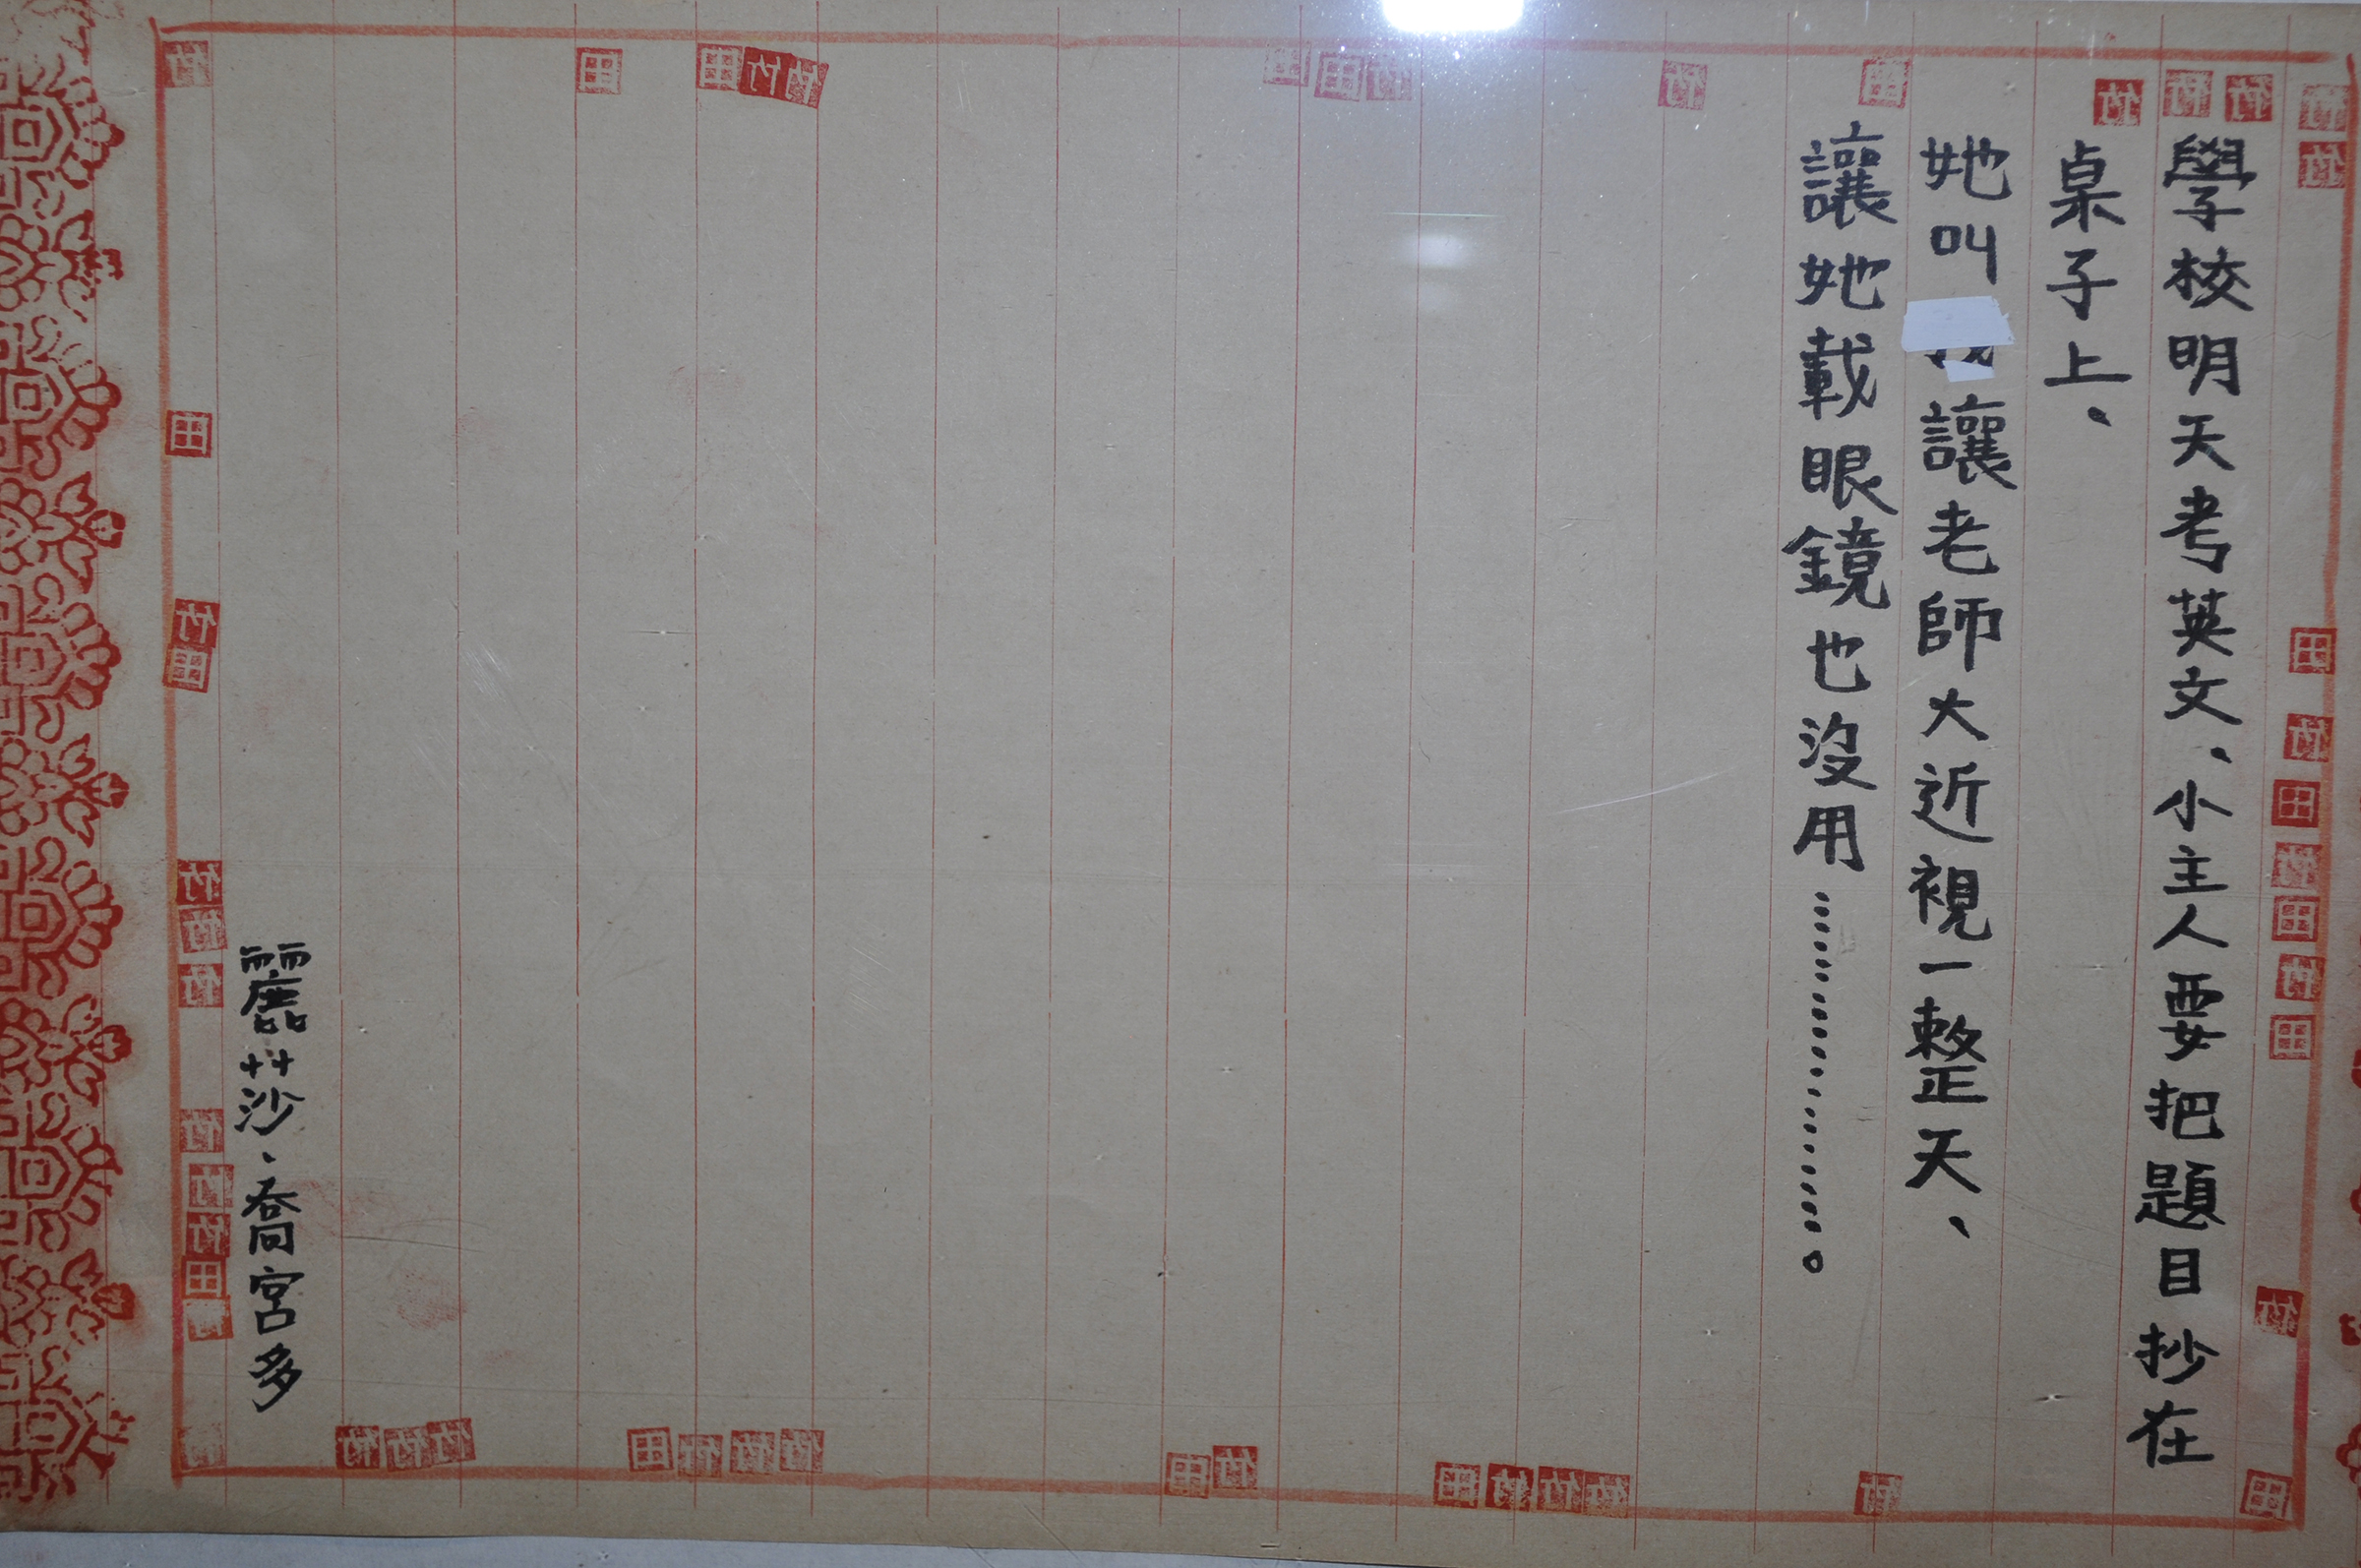 學校明天考英文、小主人要把題目抄在
桌子上、
她叫讓老師大近視一整天、
讓她載眼鏡也沒用…………。
麗莎、喬宮多